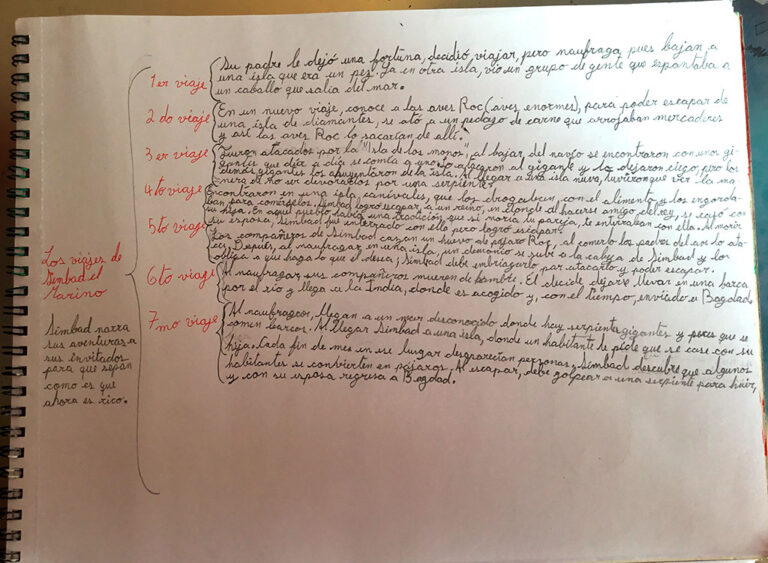 Los viajes de
Simbad el
Marino
Simbad narra
sus aventuras a
sus invitados
para que sepan
como es que
ahora es rico.
1er viaje
Su padre le dejó una fortuna, decidió viajar, pero naufraga, pues bajan a
una isla que era un pez. Ya en otra isla, vio un grupo de gente que espantaba a
un caballo que salía del mar.
2do viaje
En un nuevo viaje, conoce a las aves Roc (aves enormes), para poder escapar de
una isla de diamantes, se ató a un pedazo de carne que arrojaban mercaderes
y así las aves Roc lo sacarían de allí.
3er viaje
Fueron atacados por la "Isla de los monos", al bajar del navío se encontraron con unos gi-
gantes que día a día se comía a uno, atacaron al gigante y lo dejaron ciego, pero los
demás gigantes los ahuyentaron de la isla. Al llegar a una isla nueva, tuvieron que ver la ma
nera de no ser devorados por una serpiente.
4to viaje
Encontraron en una isla, caníbales, que los drogaban, con el alimento, y los engorda-
ban para comérselos. Simbad logró escapar, a un reino, en donde al hacerse amigo del rey, se casó con
su hija. En aquel pueblo había una tradición que si moría tu pareja, te enterraban con ella. Al morir
su esposa, Simbad fue enterrado con ella pero logró escapar.
5to viaje
Los compañeros de Simbad cazan un huevo de pájaro Roc, al comerlo los padres del ave lo ata-
can. Después, al naufragar en una isla, un demonio se sube a la cabeza de Simbad y los
obliga a que haga lo que el desea; Simbad debe embriagarlo par atacarlo y poder escapar.
6to viaje
Al naufragar, sus compañeros mueren de hambre. El decide dejarse llevar en una barca
por el río y llega a la India, donde es acogido y, con el tiempo, enviado a Bagdad.
7mo viaje
Al naufragar, llegan a un mar desconocido donde hay serpientes gigantes y peces que se
comen barcos. Al llegar Simbad a una isla, donde un habitante le pide que se case con su
hija. Cada fin de mes en ese lugar desaparecían personas, Simbad descubre que algunos
habitantes se convierten en pájaros. Al escapar, debe golpear a una serpiente para huir,
y con su esposa regresa a Bagdad.